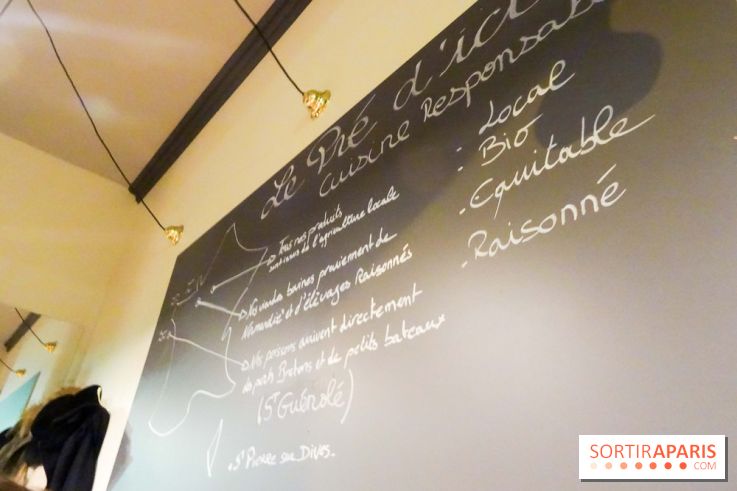 Le Pré d'ici
Cuisine Responsable
. Local
. Bio
. Equitable
. Raisonné
Tous nos produits
sont issus de l'agriculture locale
Nos viandes bovines proviennent de
Normandie et d'élevages Raisonnés
Nos poissons arrivent directement
de ports Bretons et de petits bateaux
(St Guénolé)
. St Pierre sur Dives.
SORTIRAPARIS
.COM